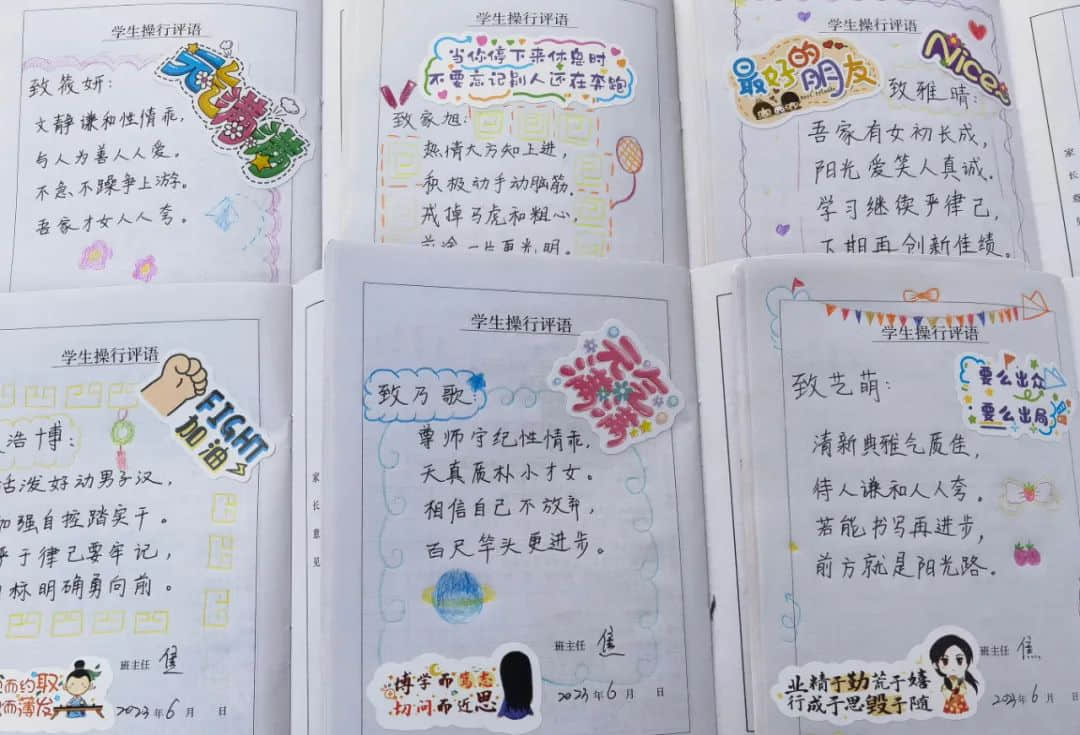 学生操行评语
元气满满
致筱妍：
文静谦和性情乖，
与人为善人人爱。
不急不躁争上游。
吾家才女人人夸。
学生操行评语
当你停下来休息时
不要忘记别人还在奔跑
致家旭：
热情大方知上进，
积极动手动脑筋。
戒掉马虎和粗心，
前途一片更光明。
学生操行评语
最好的朋友
Nice
致雅晴：
吾家有女初长成，
阳光爱笑人真诚。
学习继续严律己，
下期再创新佳绩。
家长意
学生操行评语
FIGHT
加油
浩博：
活泼好动男子汉，
加强自控踏实干。
严于律己要牢记，
目标明确勇向前。
班主任 焦
而约取
而薄发
2023年6月 日
家长意见
学生操行评语
元气满满
致乃歌：
尊师守纪性情乖，
天真质朴小才女。
相信自己不放弃，
百尺竿头更进步。
班主任 焦
博学而笃志
切问而近思
2023年6月 日
学生操行评语
要么出众
要么出局
致艺萌：
清新典雅气质佳，
待人谦和人人夸。
若能书写再进步，
前方就是阳光路。
班主任 焦
业精于勤荒于嬉
行成于思毁于随
2023年6月 日